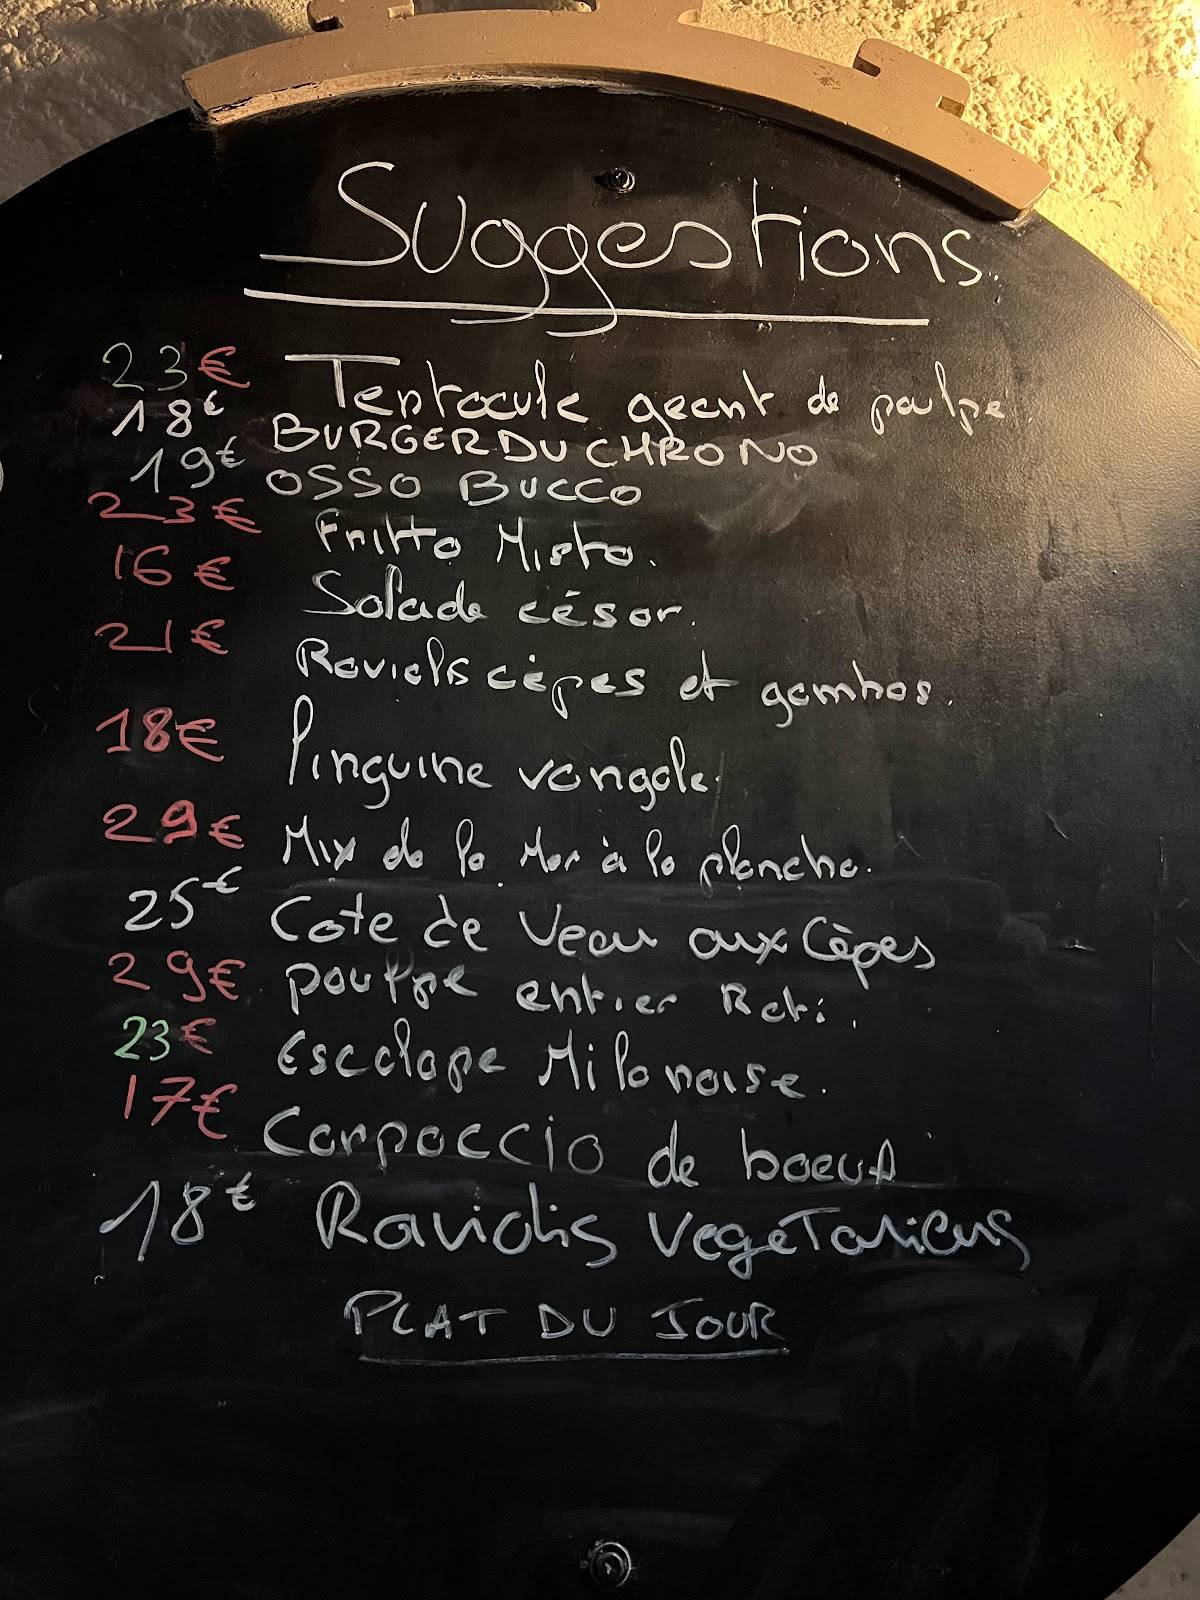 Suggestions.
23€ Tentacule geant de poulpe
18€ BURGER DU CHRONO
19€ OSSO BUCCO
23€ Fritto Misto.
16€ Salade césar.
21€ Raviolis cèpes et gambas.
18€ Pinguine vongole.
29€ Mix de la Mer à la plancha.
25€ Cote de Veau aux Cèpes
29€ poulpe entier Roti.
23€ Escalope Milanaise.
17€ Carpaccio de boeuf
18€ Raviolis vegeTariens
PLAT DU JOUR